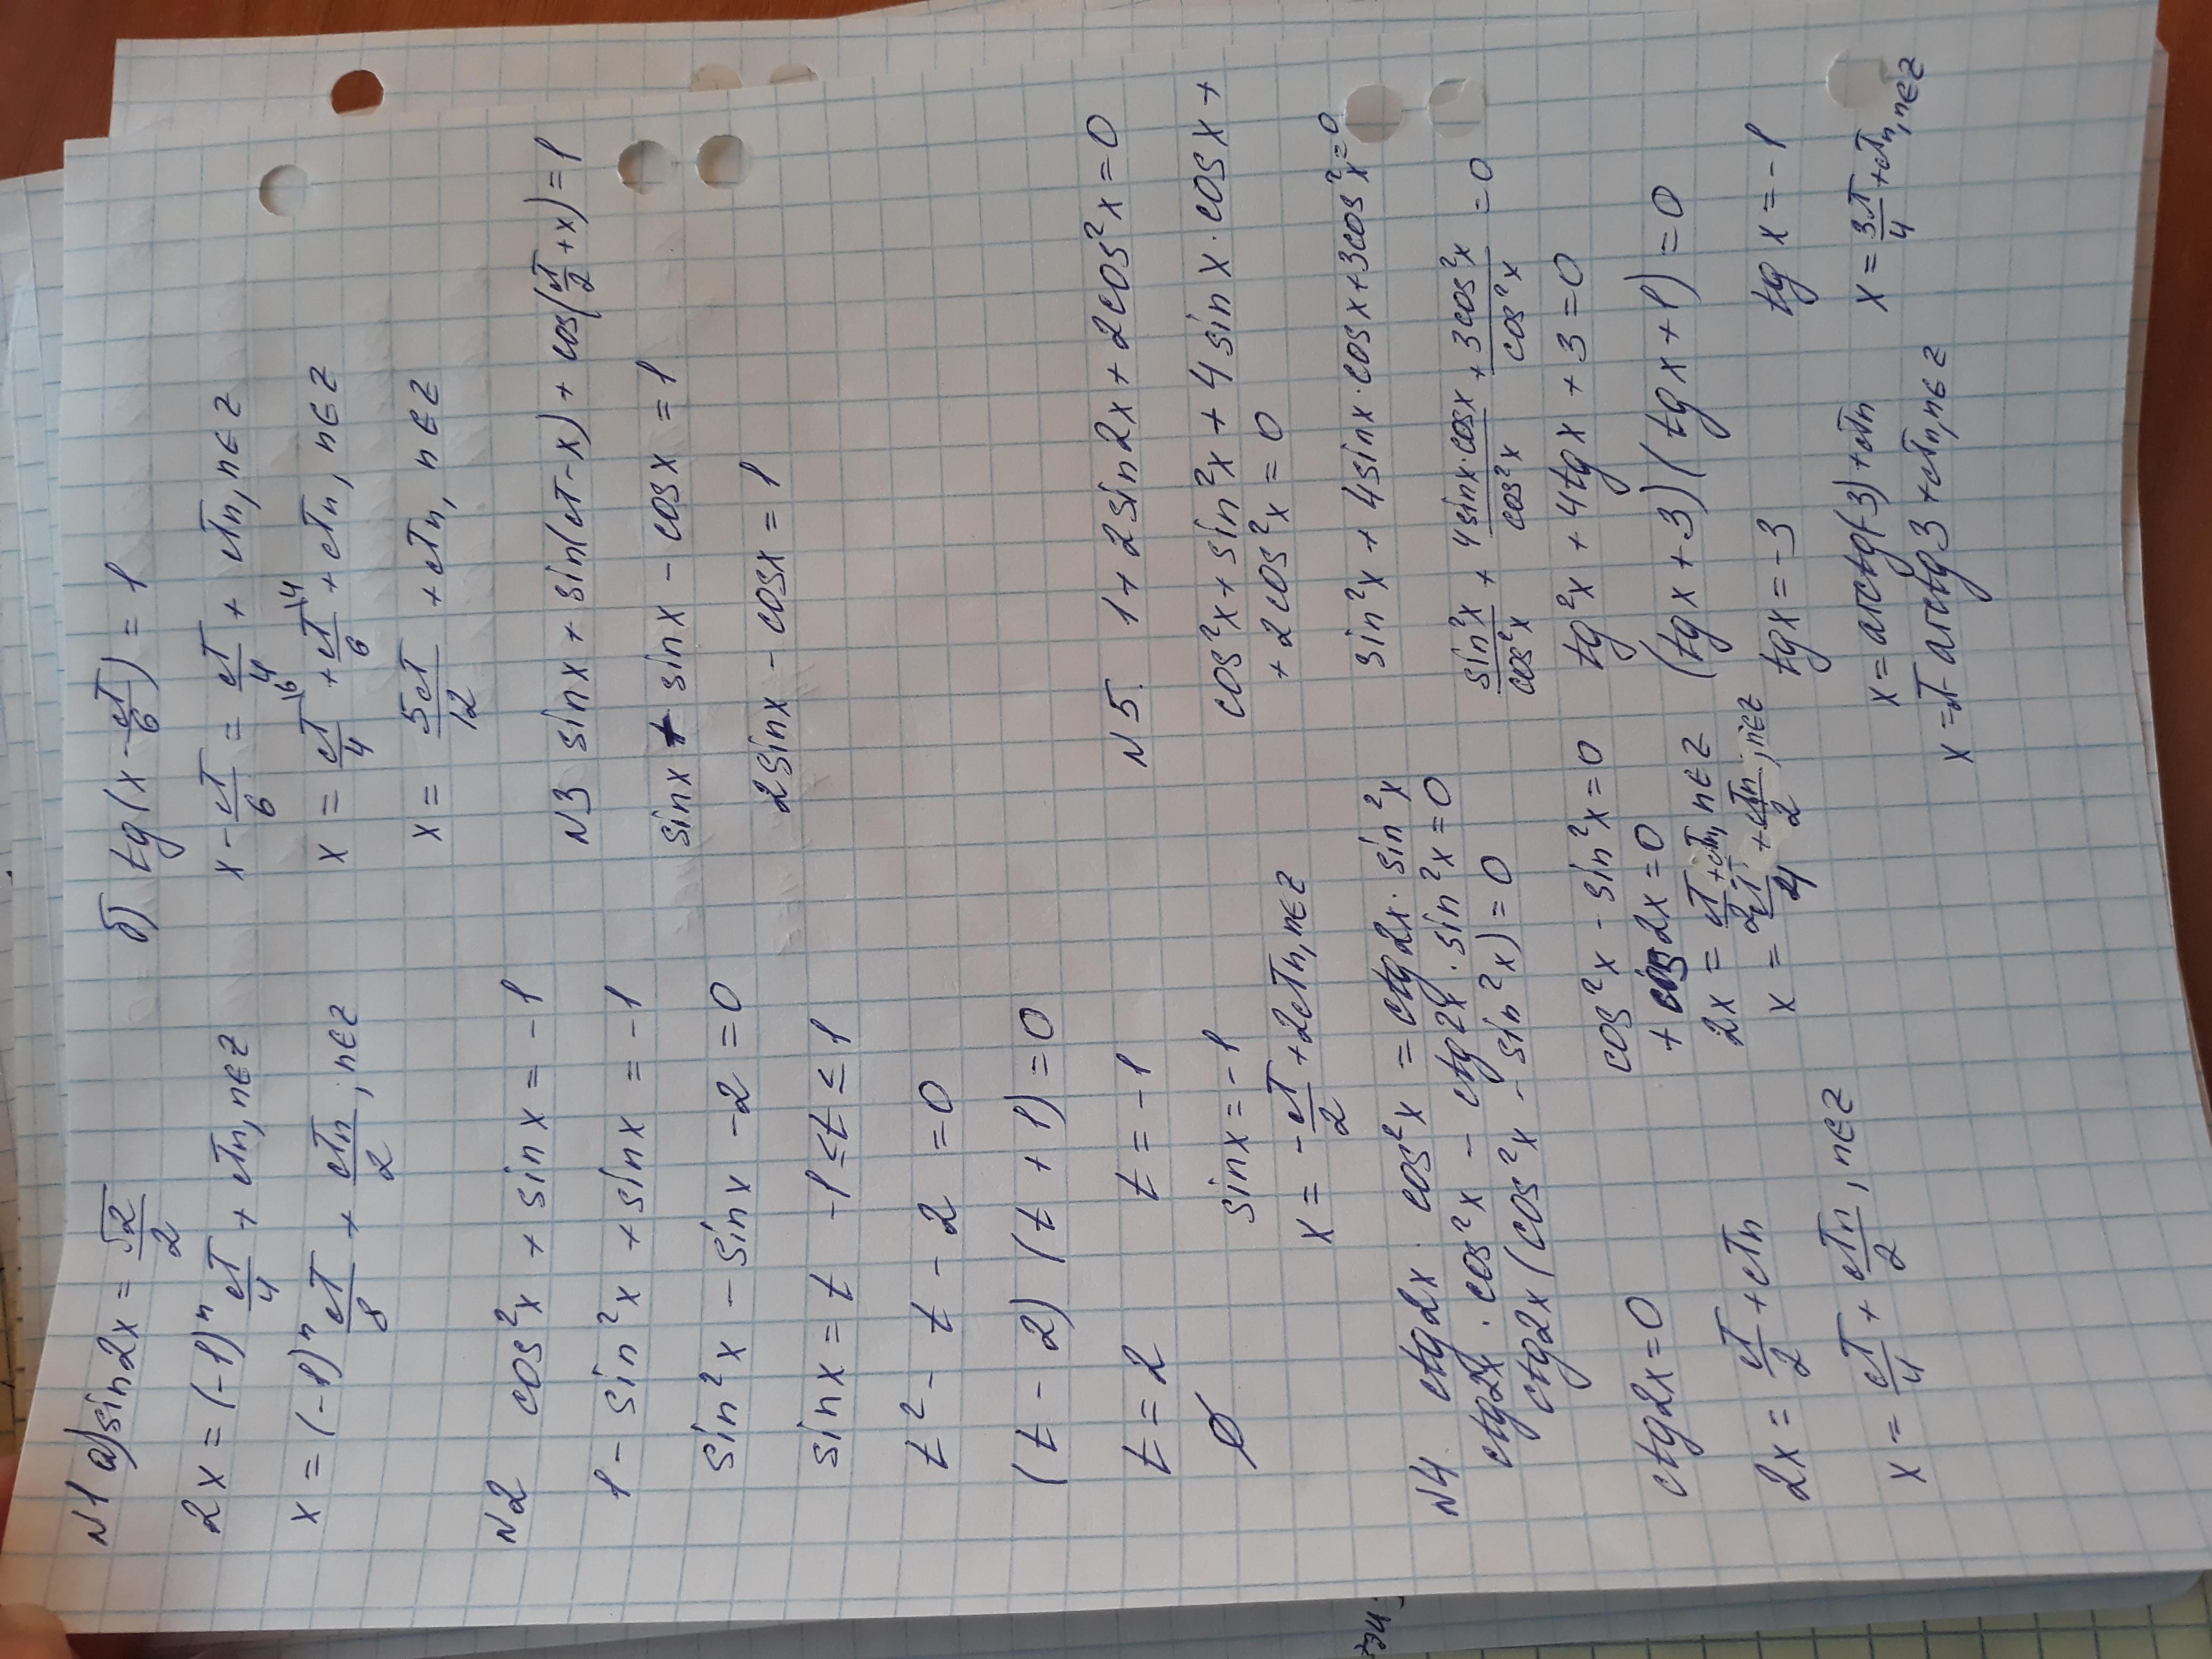 N1 а) sin2x = √2/2
2x = (-1)ⁿ π/4 + πn, n∈Z
x = (-1)ⁿ π/8 + πn/2, n∈Z
б) tg(x - π/6) = 1
x - π/6 = π/4 + πn, n∈Z
x = π/4 \6 + π/6 \4 + πn, n∈Z
x = 5π/12 + πn, n∈Z
N2 cos²x + sinx = -1
1 - sin²x + sinx = -1
sin²x - sinx - 2 = 0
sinx = t -1≤t≤1
t² - t - 2 = 0
(t - 2)(t + 1) = 0
t = 2 t = -1
∅ sinx = -1
x = -π/2 + 2πn, n∈Z
N3 sinx + sin(π-x) + cos(π/2 + x) = 1
sinx + sinx - cosx = 1
2sinx - cosx = 1
N4. ctg2x · cos²x = ctg2x · sin²x
ctg2x · cos²x - ctg2x · sin²x = 0
ctg2x (cos²x - sin²x) = 0
ctg2x = 0 cos²x - sin²x = 0
2x = π/2 + πn + cos2x = 0
x = π/4 + πn/2, n∈Z 2x = π/2 + πn, n∈Z
x = π/4 + πn/2, n∈Z
N5. 1 + 2sin2x + 2cos²x = 0
cos²x + sin²x + 4sinx · cosx +
+ 2cos²x = 0
sin²x + 4sinx · cosx + 3cos²x = 0
sin²x/cos²x + 4sinx·cosx/cos²x + 3cos²x/cos²x = 0
tg²x + 4tgx + 3 = 0
(tgx + 3)(tgx + 1) = 0
tgx = -3 tgx = -1
x = arctg(-3) + πn x = 3π/4 + πn, n∈Z
x = π - arctg3 + πn, n∈Z